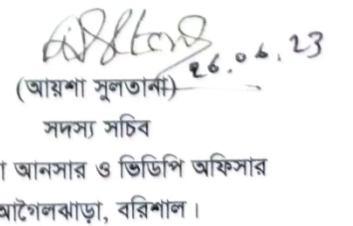 26.06.23
(আয়শা সুলতানা)
সদস্য সচিব
া আনসার ও ভিডিপি অফিসার
আগৈলঝাড়া, বরিশাল।